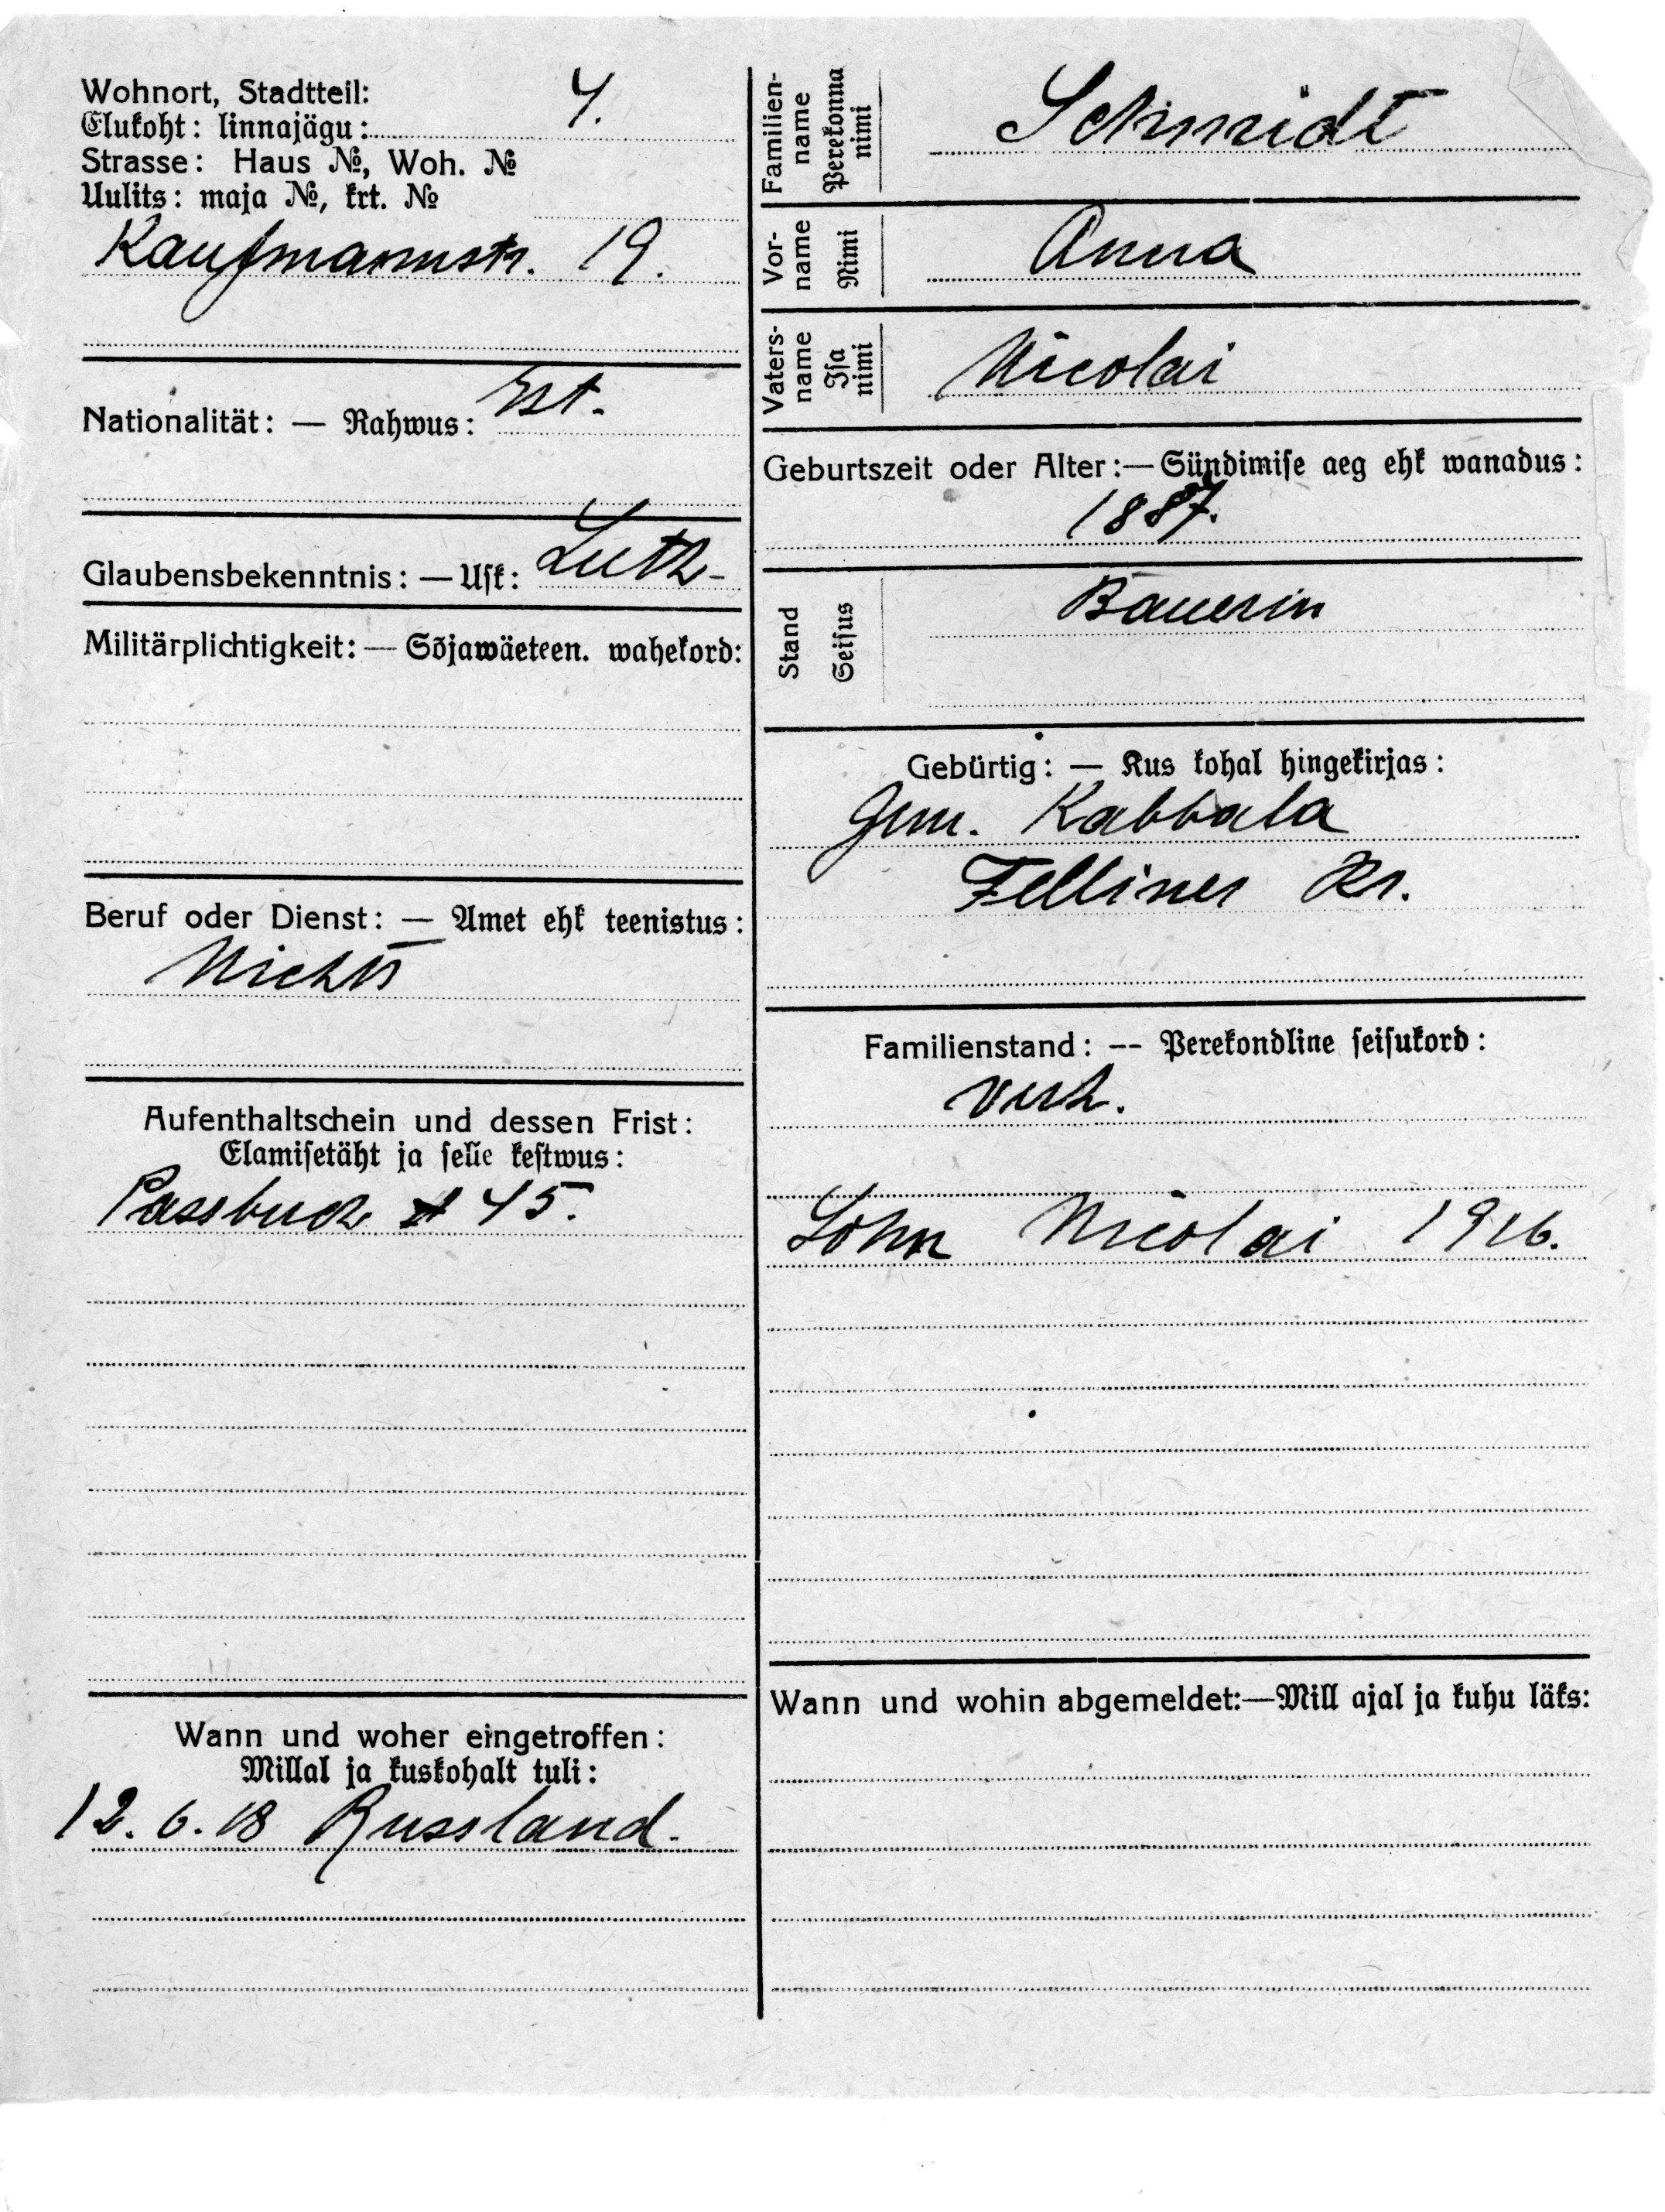 Wohnort, Stadtteil:
Elukoht: linnajägu: 4.
Strasse: Haus №, Woh. №
Uulits: maja №, krt. №
Kaufmannstr. 19.
Nationalität: — Rahwus: Est.
Glaubensbekenntnis: — Usk: Luth-
Militärplichtigkeit: — Sõjawäeteen. wahekord:
Beruf oder Dienst: — Amet ehk teenistus:
Nichts
Aufenthaltschein und dessen Frist:
Elamisetäht ja selle kestwus:
Passbuch № 45.
Wann und woher eingetroffen:
Millal ja kuskohalt tuli:
12. 6. 18 Russland.
Familien-
name
Perekonna
nimi
Schmidt
Vor-
name
Nimi
Anna
Vaters-
name
Isa
nimi
Nicolai
Geburtszeit oder Alter: — Sündimise aeg ehk wanadus:
1887.
Stand
Seisus
Bauerin
Gebürtig: — Kus kohal hingekirjas:
Gem. Kabbala
Felliner Kr.
Familienstand: -- Perekondline seisukord:
verh.
Sohn Nicolai 1916.
Wann und wohin abgemeldet:—Mill ajal ja kuhu läks: